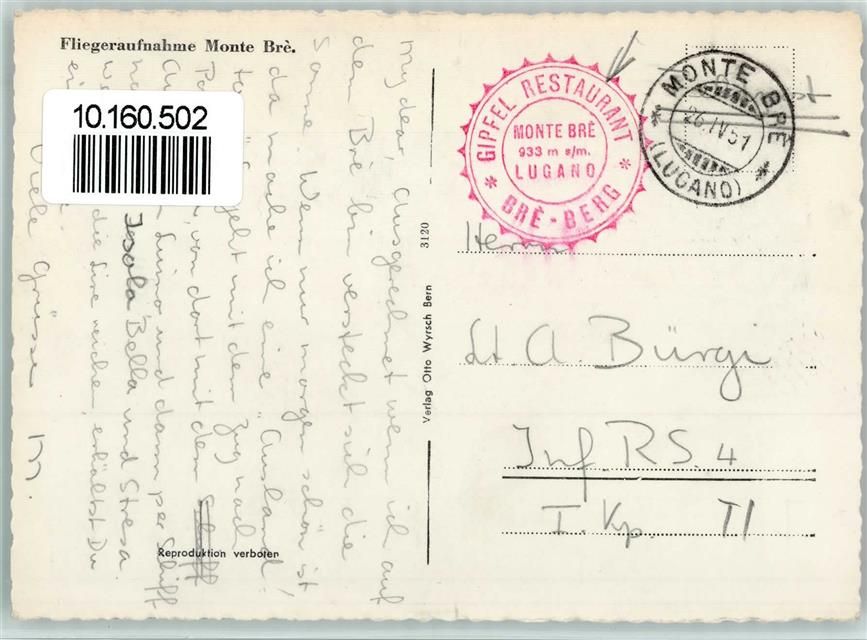 Fliegeraufnahme Monte Brè.
10.160.502
My dear, ausgerechnet wenn ich auf
dem Brè bin versteckt sich die
Sonne. Wenn nur morgen schön ist
da mache ich eine "Ausland
geht mit dem Zug nach
von dort mit dem Schiff
Luino und dann per Schiff
Isola Bella und Stresa.
die Line reichen, erhältst Du
Viele Grüsse M.
Reproduktion verboten
3120
Verlag Otto Wyrsch Bern
GIPFEL RESTAURANT
MONTE BRÈ
933 m s/m.
LUGANO
* BRÈ-BERG *
MONTE BRÈ
26.IV.51
* (LUGANO) *
Herrn
Lt. A. Bürgi
Inf. R.S. 4
I. Kp. TI